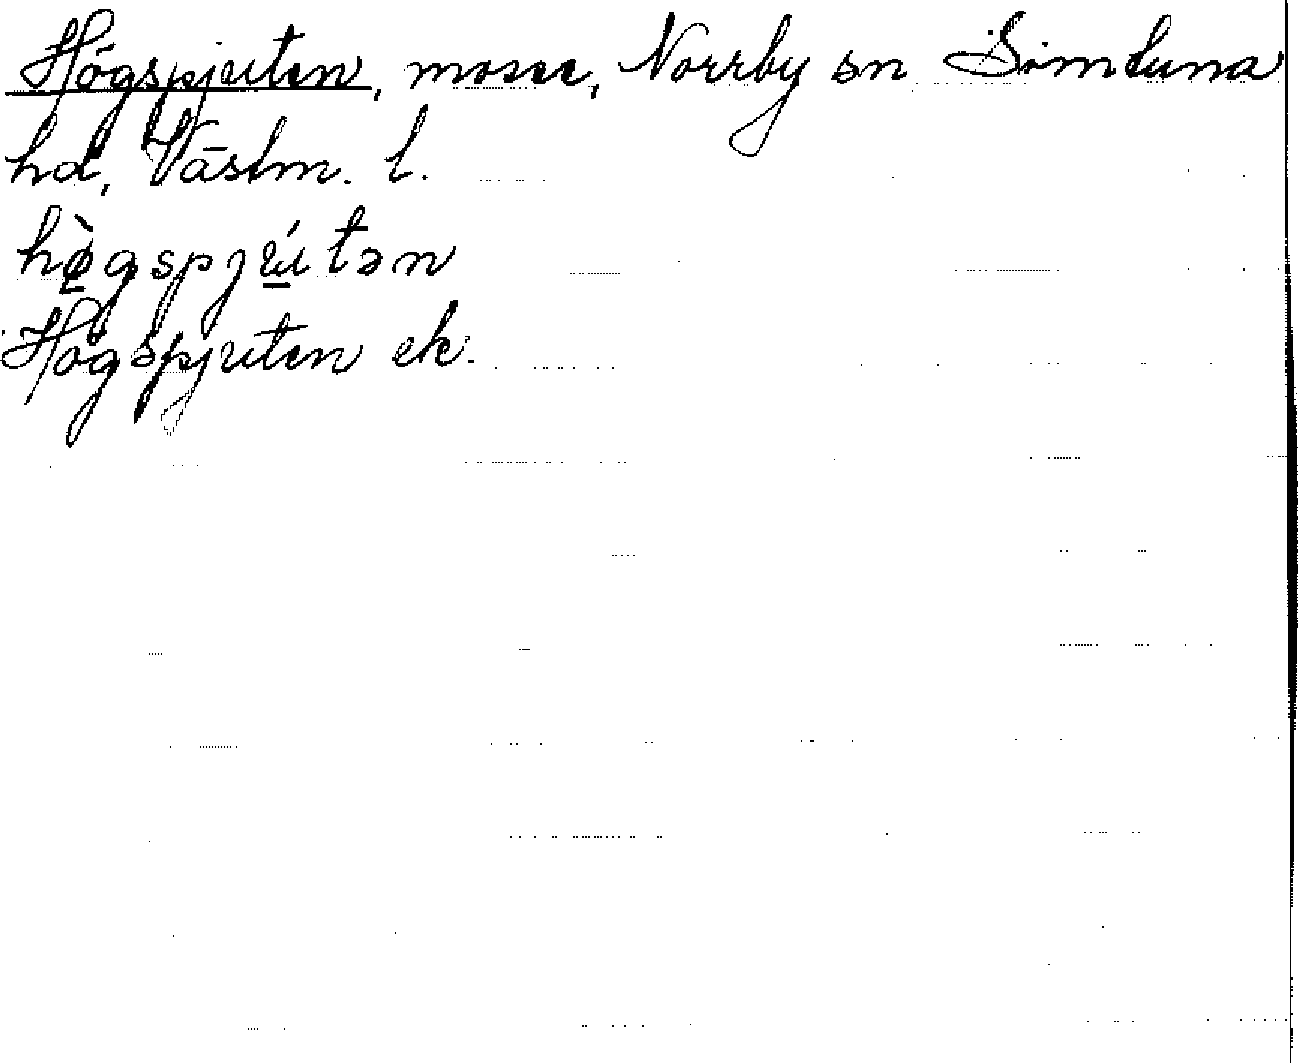 Högspjuten, mosse, Norrby sn Simtuna
hd, Västm. l.
hø̀gspjú̱tən
Högspjuten ek.